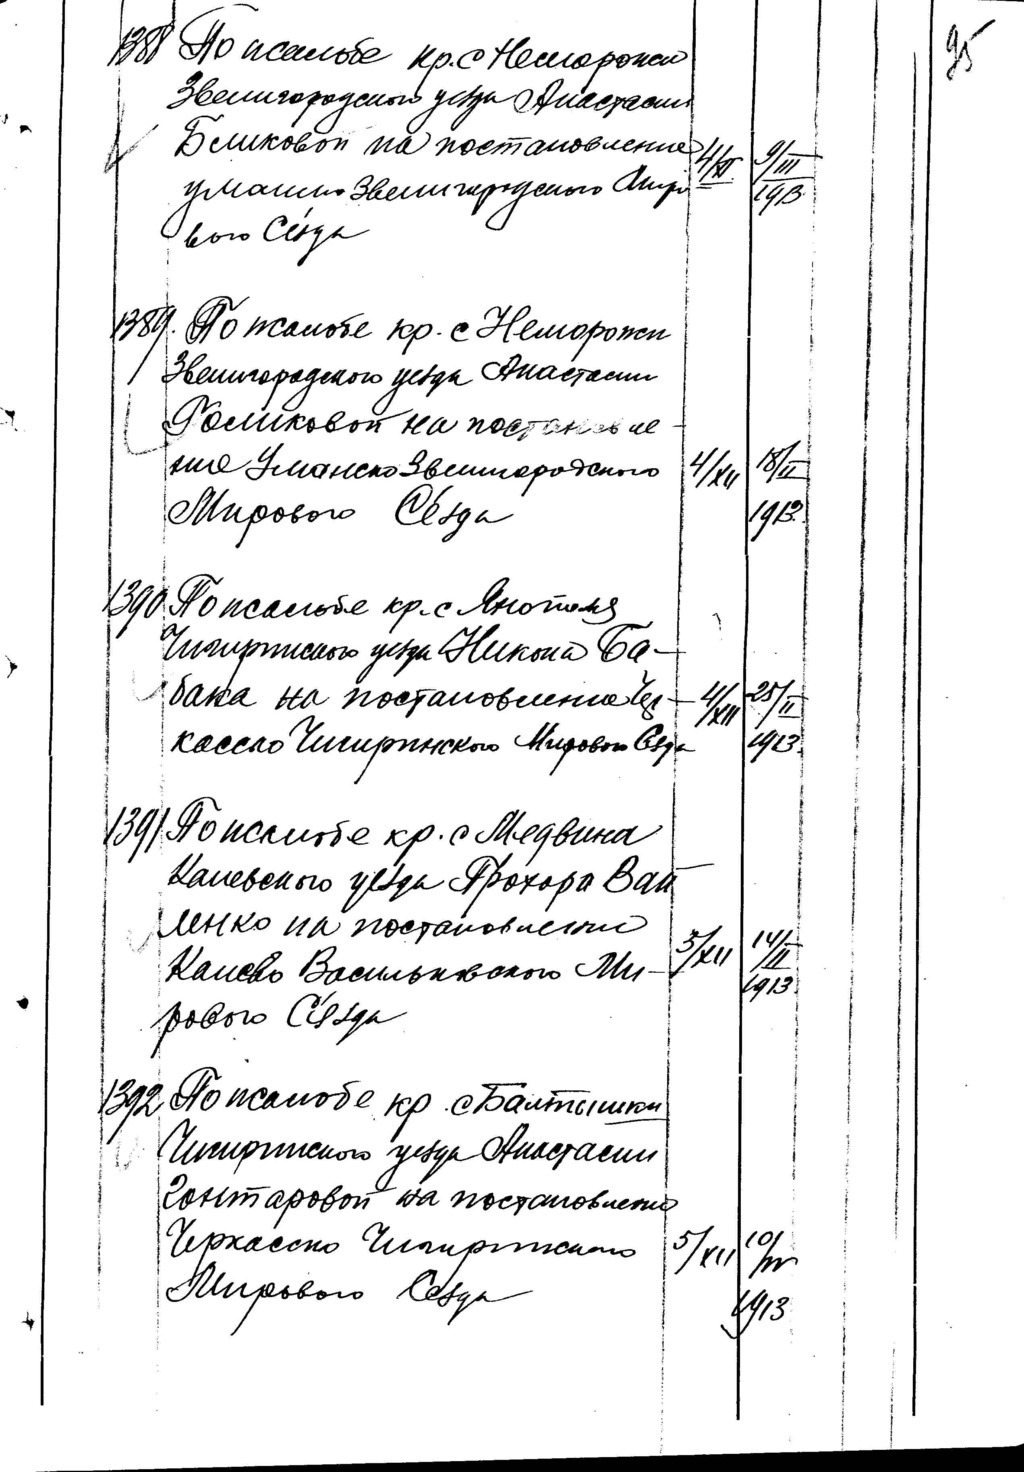 95
1388 По жалобе кр. с Неморожи
Звенигородского уезда Анастасии
Беликовой на постановление
Уманско Звенигородского Миро
вого Съезда
4/XII 9/III 1913
1389. По жалобе кр. с Неморожи
Звенигородского уезда Анастасии
на постановле
ние Уманско Звенигородского
Мирового Съезда
4/XII 18/II 1913.
1390 По жалобе кр. с
Чигиринского уезда Никона Ба-
бака на постановление Чер-
касско Чигиринского Мирового Съезда
4/XII 25/II 1913.
1391 По жалобе кр. с Медвина
Каневского уезда Прохора
ленко на постановление
Канево Васильковского Ми-
рового Съезда
5/XII 14/II 1913
1392 По жалобе кр. с Балтышки
Чигиринского уезда Анастасии
Гонтаровой на постановление
Черкасско Чигиринского
Мирового Съезда
5/XII 10/ 1913